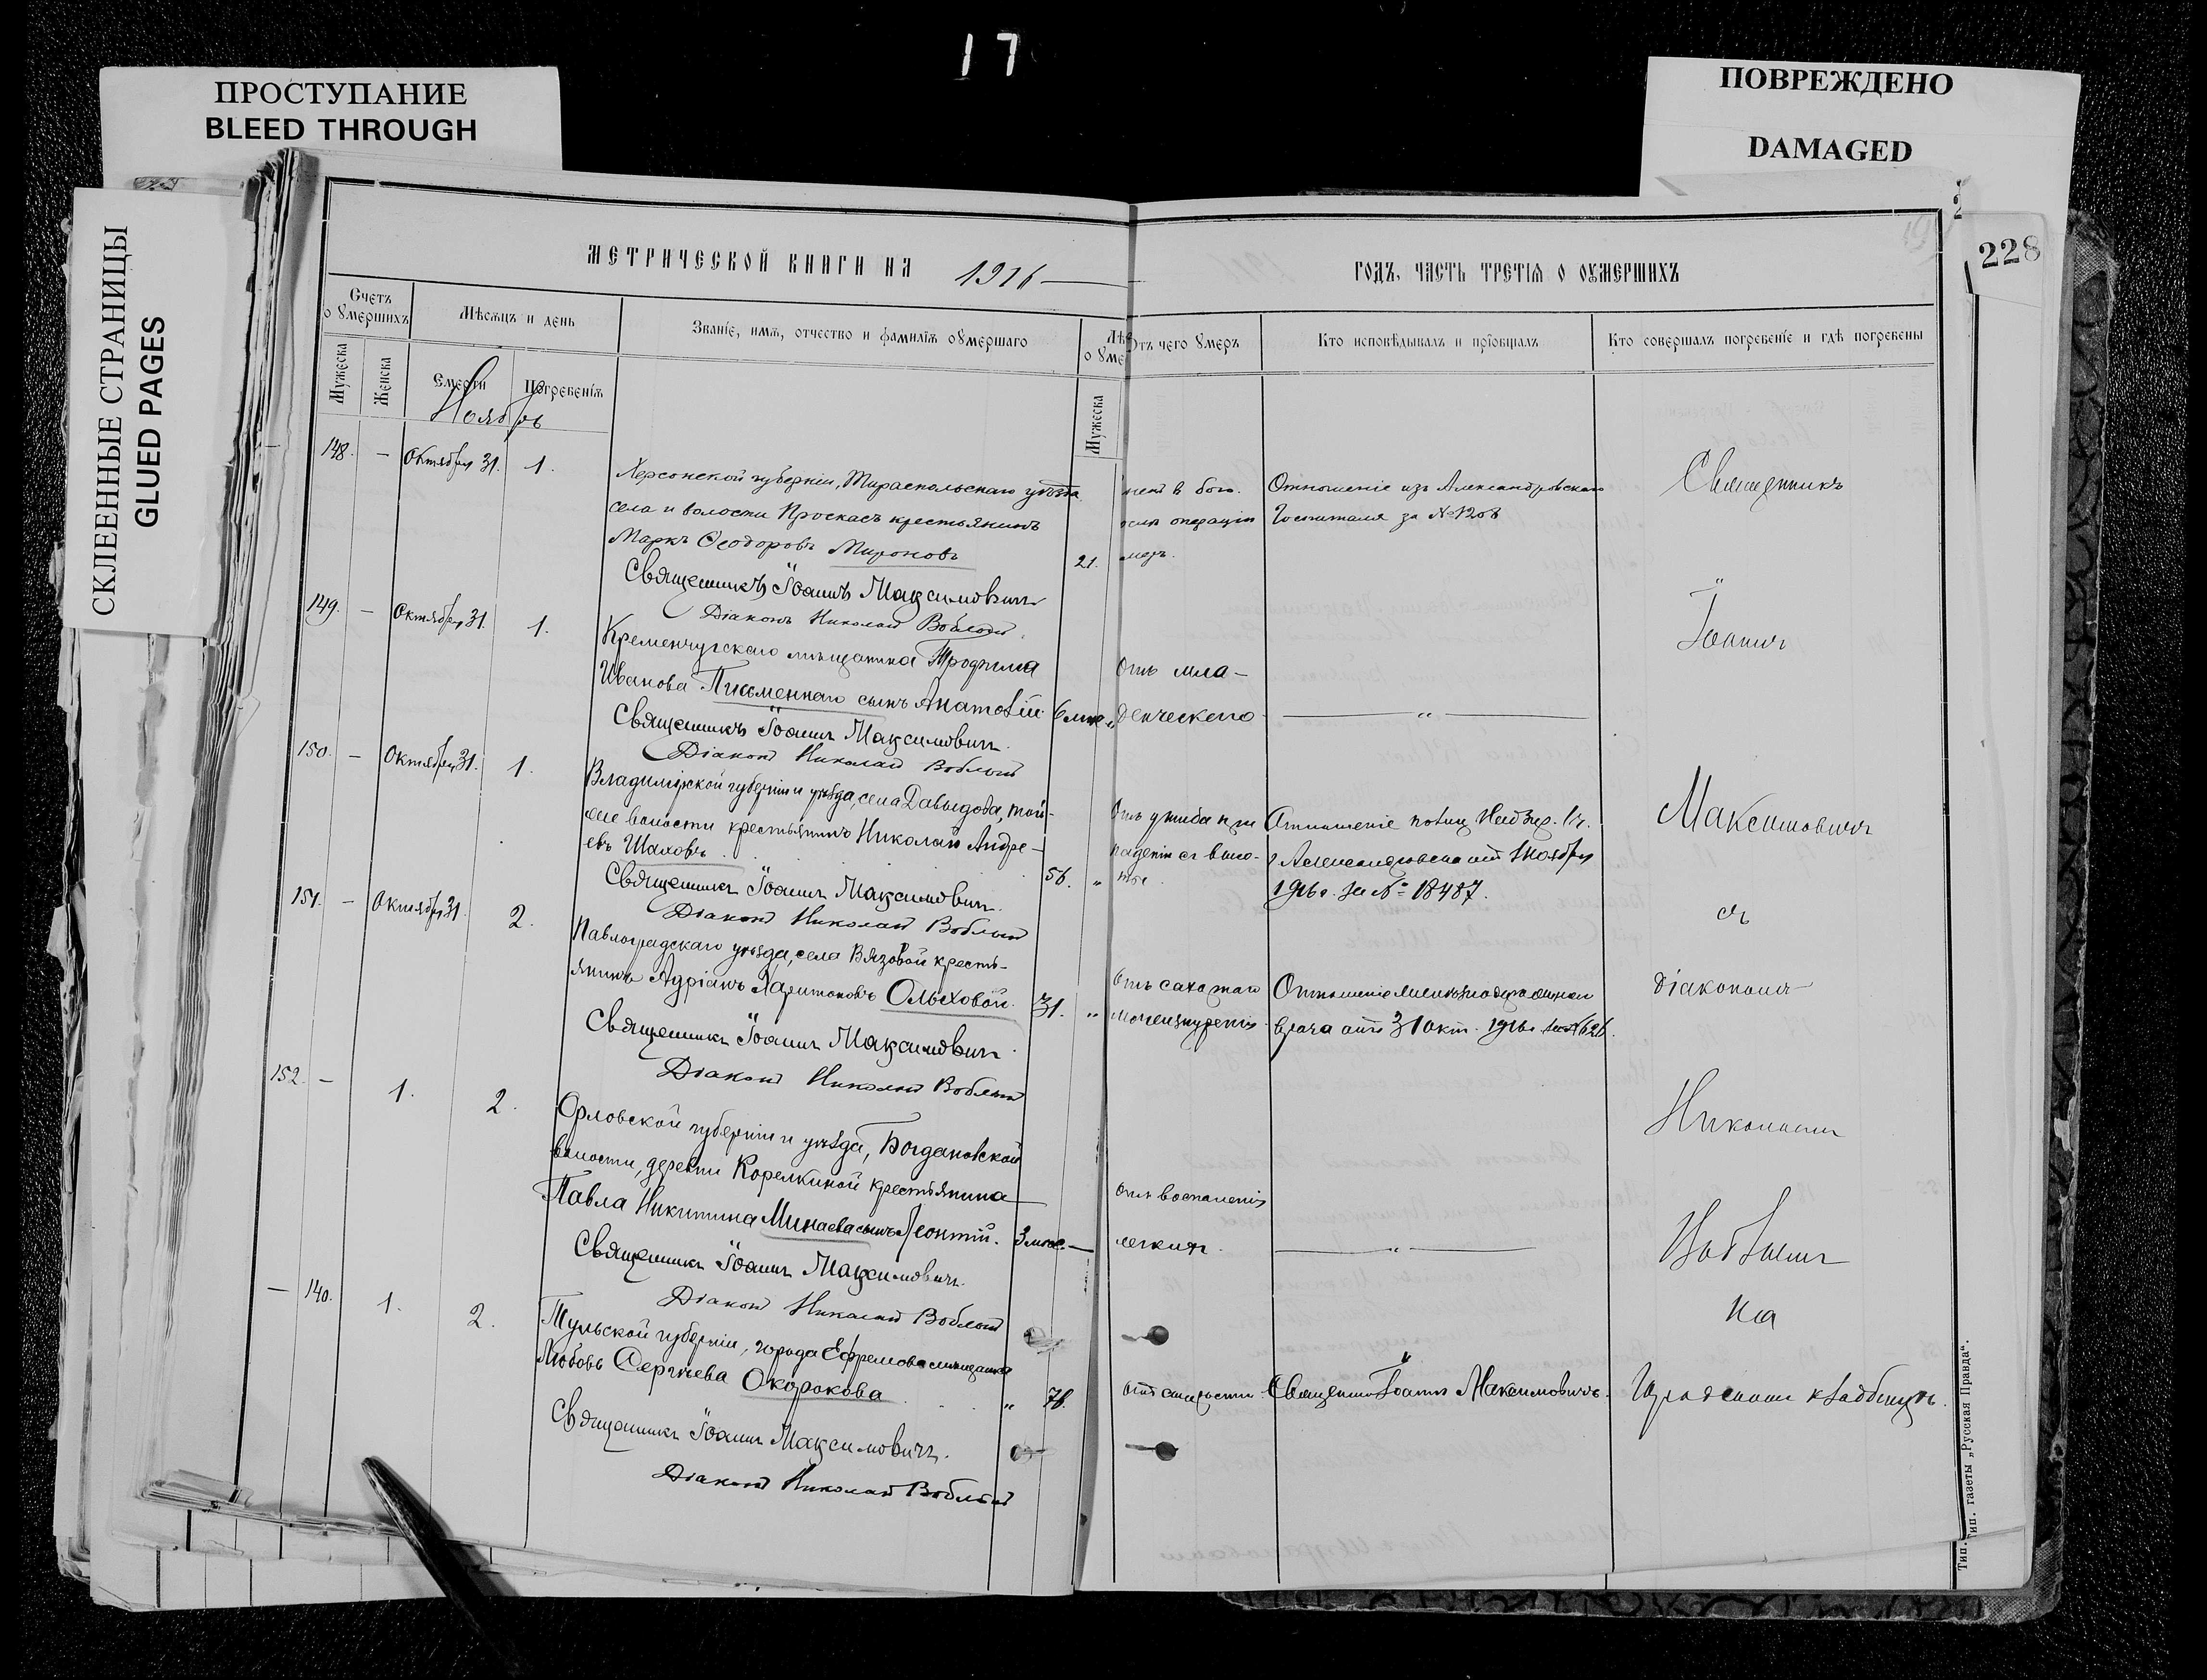 17
ПРОСТУПАНИЕ
BLEED THROUGH
ПОВРЕЖДЕНО
DAMAGED
СКЛЕЕННЫЕ СТРАНИЦЫ
GLUED PAGES
228
МЕТРИЧЕСКОЙ КНИГИ НА 1916
ГОДЪ, ЧАСТЬ ТРЕТІЯ О ОУМЕРШИХЪ
Счетъ
о умершихъ
Мѣсяцъ и день
Званіе, имя, отчество и фамилія оумершаго
Лѣ
о уме
Отъ чего умеръ
Кто исповѣдывалъ и пріобщалъ
Кто совершалъ погребеніе и гдѣ погребены
Мужеска
Женска
Смерти
Погребенія
Мужеска
Ноябрь
148. — Октября 31. 1.
Херсонской губерніи, Тираспольскаго уѣзда
села и волости Проскасъ крестьянинъ
Маркъ Ѳеодоровъ Мироновъ 21.
Отношеніе изъ Александровскаго
Госпиталя за №1208
Священникъ Іоаннъ Максимовичъ
Діаконъ Николай Воблый
149. — Октября 31. 1.
Кременчугскаго мѣщанина Трофима
Иванова Письменнаго сынъ Анатолій 6 мѣс. "
Отъ мла-
денческаго — " —
Священникъ Іоаннъ Максимовичъ
Діаконъ Николай Воблый
150. — Октября 31. 1.
Владимірской губерніи и уѣзда, села Давыдова, той-
же волости крестьянинъ Николай Андре-
евъ Шаховъ 56. "
Отъ ушиба при
паденіи съ высо-
ты.
г. Александровска отъ 1 Ноября
1916 г. за № 18487.
Священникъ Іоаннъ Максимовичъ
Діаконъ Николай Воблый
151. — Октября 31. 2.
Павлоградскаго уѣзда, села Вязовой кресть-
янинъ Адріанъ Харитоновъ Ольховой. 31. "
Отъ сахарнаго
мочеизнуренія.
Отношеніе
врача отъ 31 окт. 1916 г. за № 626.
Священникъ Іоаннъ Максимовичъ
Діаконъ Николай Воблый
152. — 1. 2.
Орловской губерніи и уѣзда, Богдановской
волости, деревни Корелкиной крестьянина
Павла Никитина Минаева сынъ Леонтій. 3 мѣс. —
Отъ воспаленія
легкихъ. — " —
Священникъ Іоаннъ Максимовичъ
Діаконъ Николай Воблый
— 140. 1. 2.
Тульской губерніи, города Ефремова мѣщанка
Любовь Сергѣева Окорокова " 78.
отъ старости Священникъ Іоаннъ Максимовичъ.
Священникъ Іоаннъ Максимовичъ
Діаконъ Николай Воблый
Священникъ
Іоаннъ
Максимовичъ
съ
діакономъ
Николаемъ
Воблымъ
на
Городскомъ кладбищѣ.
Тип. газеты „Русская Правда“.